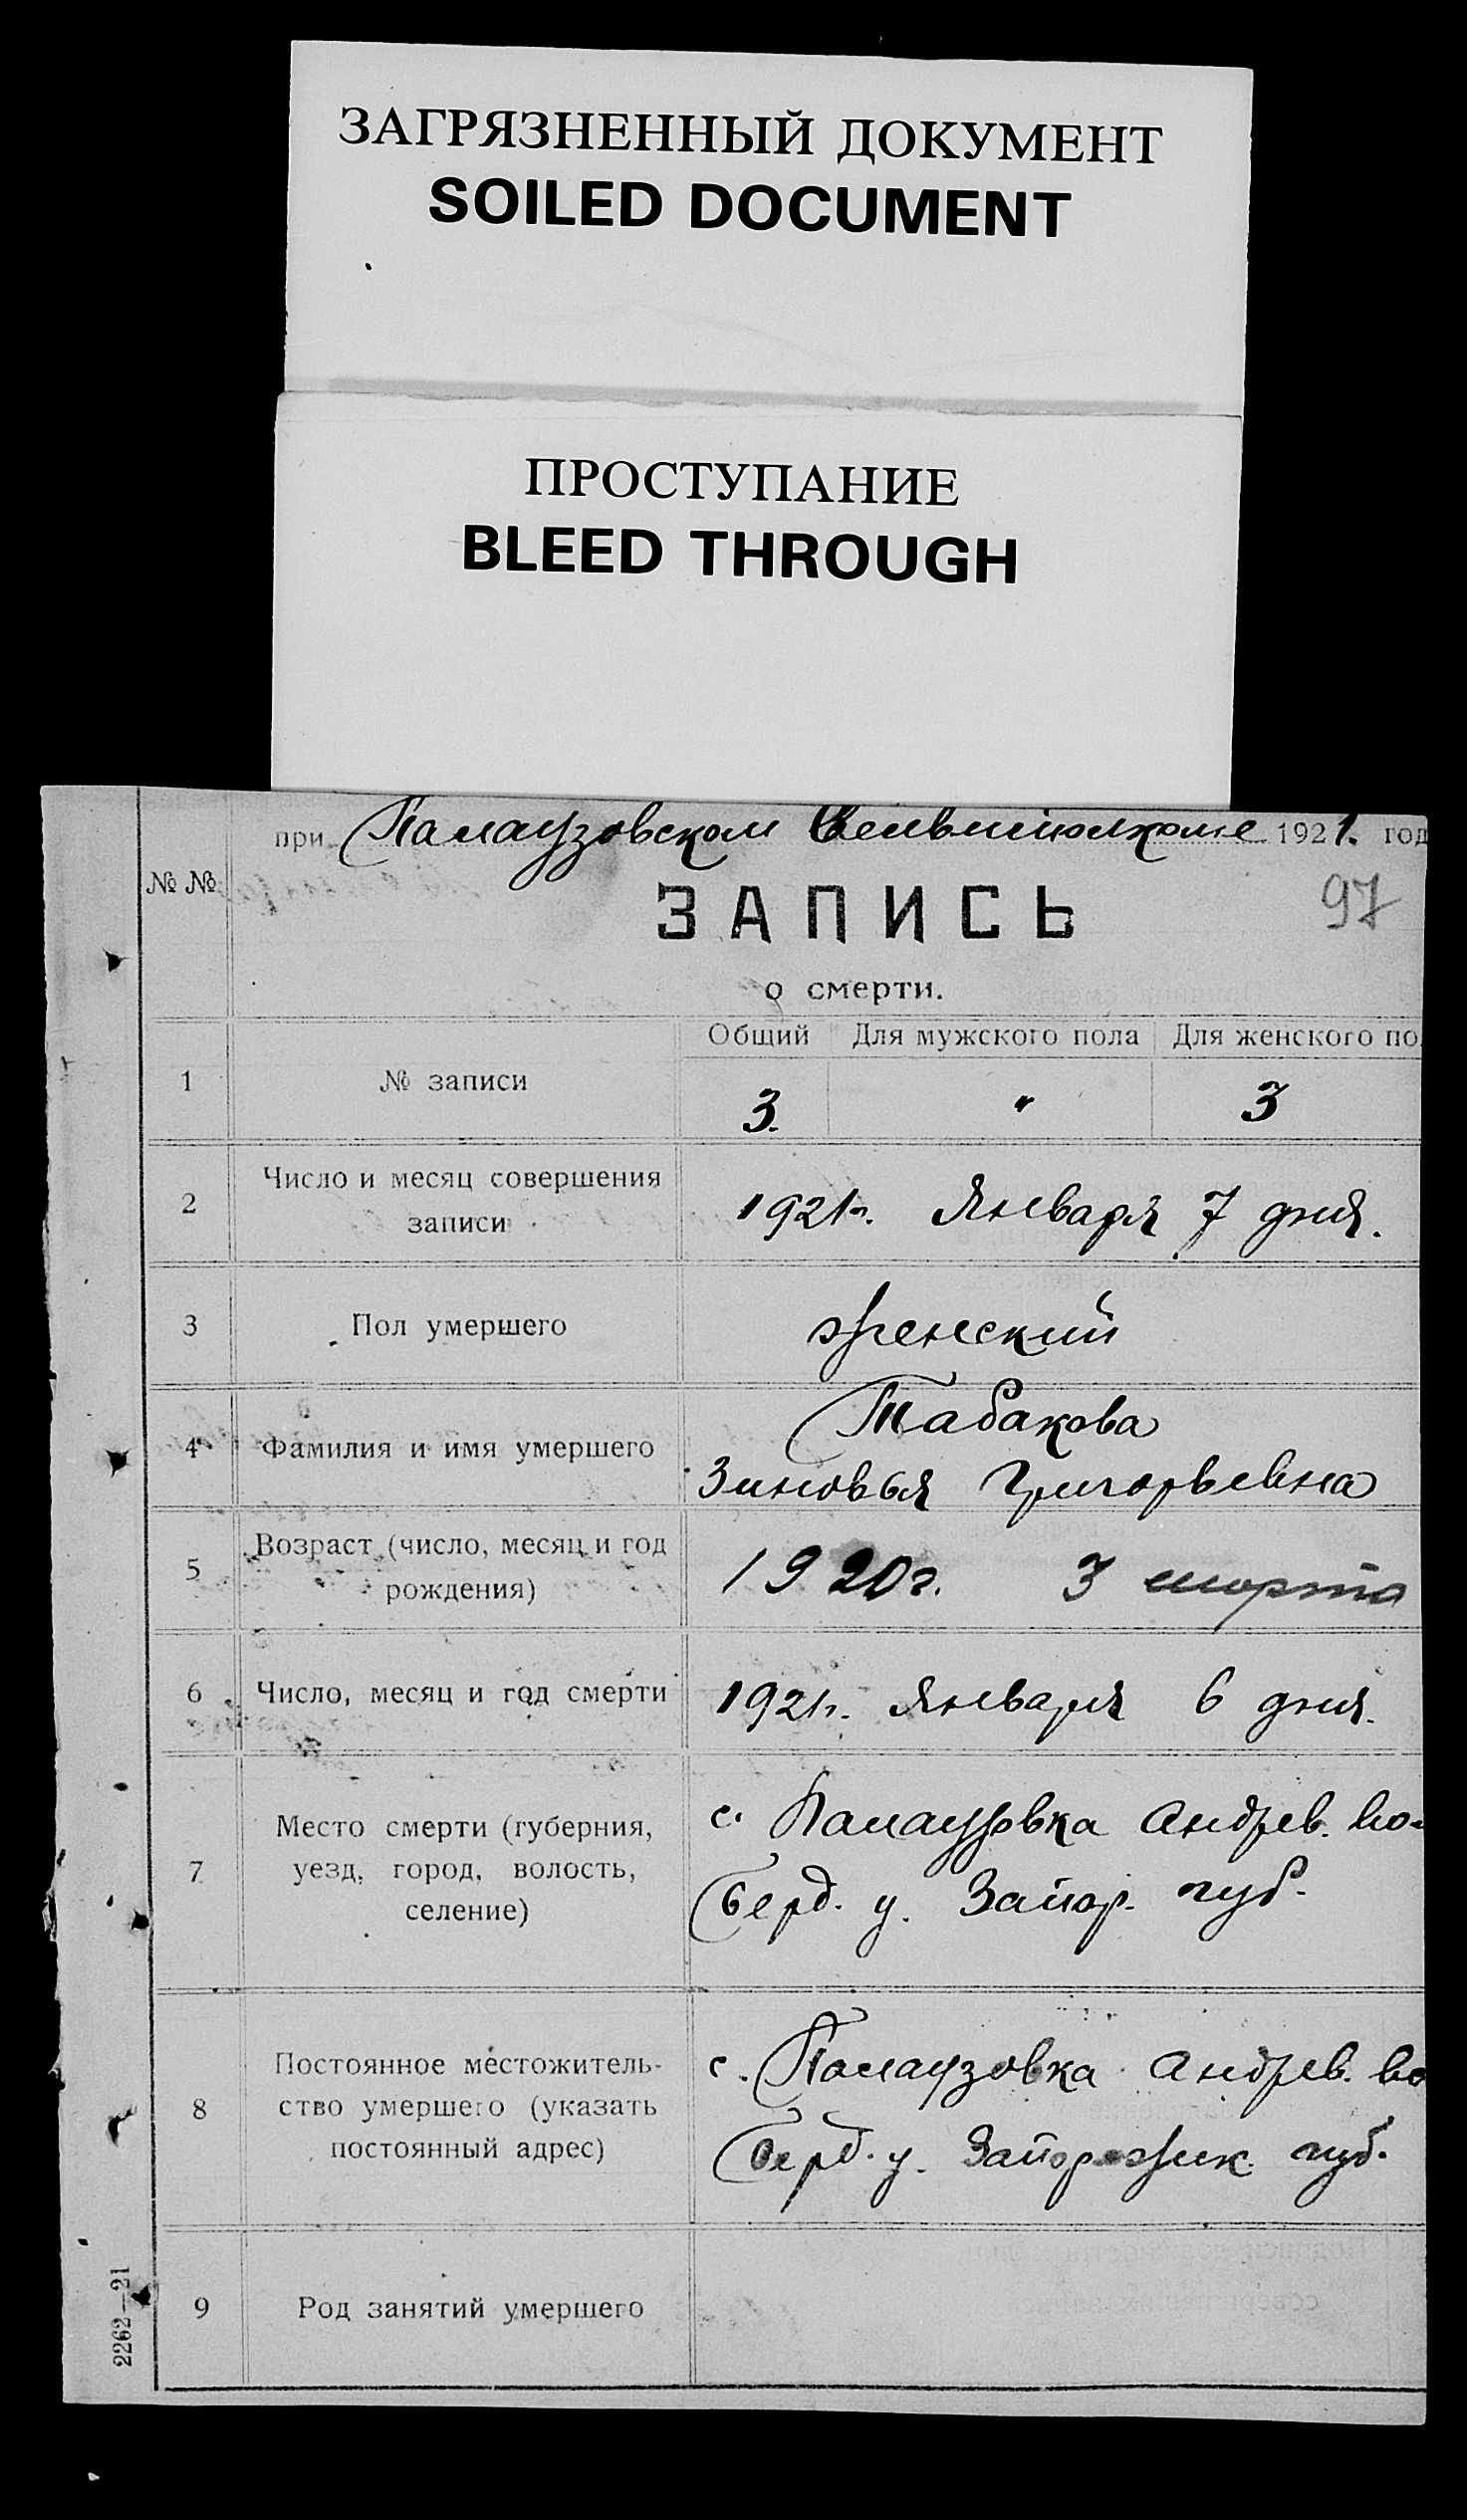 ЗАГРЯЗНЕННЫЙ ДОКУМЕНТ
SOILED DOCUMENT
ПРОСТУПАНИЕ
BLEED THROUGH
при Палаузовском 1921. год
№ №
97
ЗАПИСЬ
о смерти.
Общий Для мужского пола Для женского по
1 № записи 3. " 3
2 Число и месяц совершения
записи 1921г. Января 7 дня.
3 Пол умершего женский
4 Фамилия и имя умершего Табакова
Зиновья Григорьевна
5 Возраст (число, месяц и год
рождения) 1920г. 3 марта
6 Число, месяц и год смерти 1921г. Января 6 дня.
7 Место смерти (губерния,
уезд, город, волость,
селение)
с. Палаузовка Андрев. во-
Берд. у. Запор. губ.
8 Постоянное местожитель-
ство умершего (указать
постоянный адрес)
с. Палаузовка Андрев. во
Берд. у. губ.
9 Род занятий умершего
2262—21